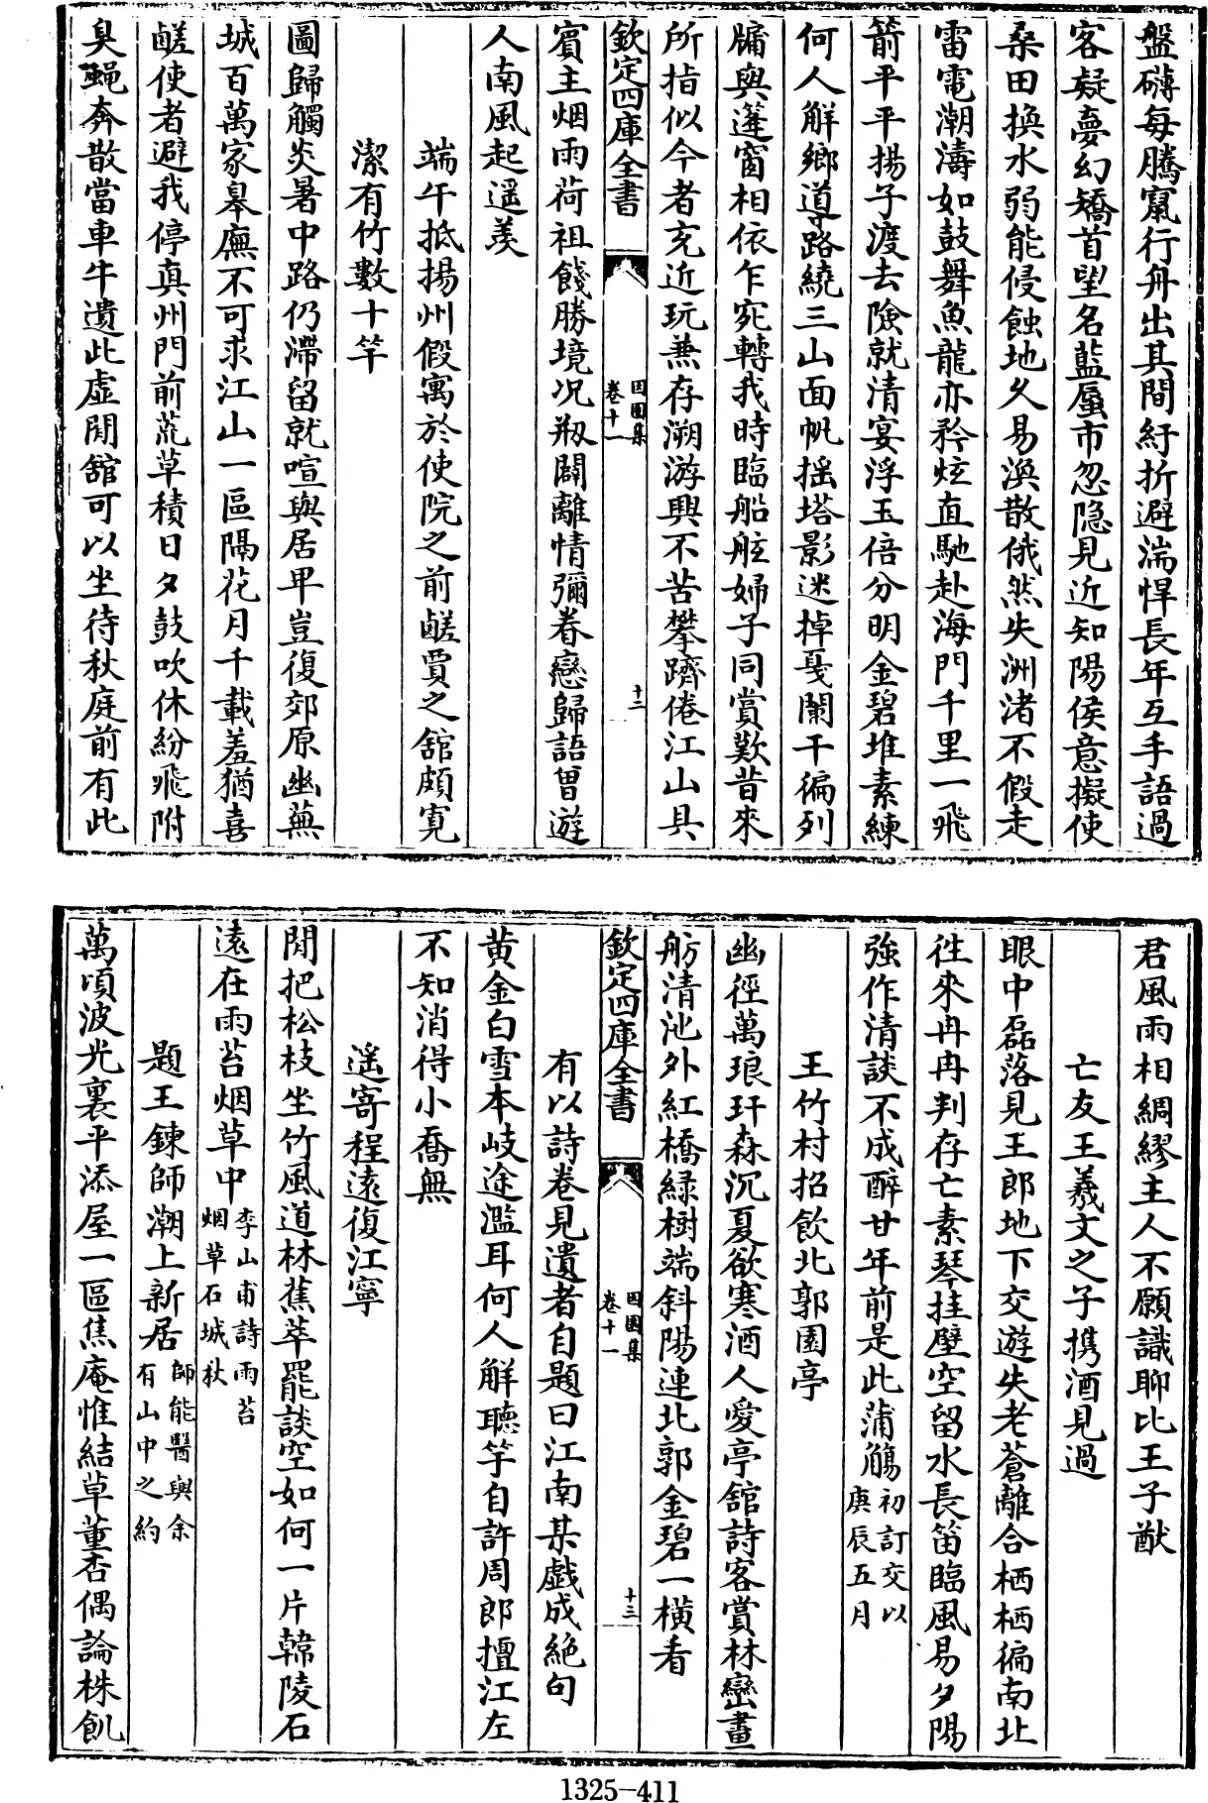 盤礴每騰竄行舟出其間紆折避湍悍長年互手語過
客疑夢幻矯首望名藍蜃市忽隐見近知陽侯意擬使
桑田換水弱能侵蝕地久易渙散俄然失洲渚不假走
雷電潮濤如鼓舞魚龍亦矜炫直馳赴海門千里一飛
箭平平揚子渡去險就清宴浮玉倍分明金碧堆素練
何人解鄉導路繞三山面帆揺塔影迷棹戛闌干徧列
牖與蓬窗相依乍宛轉我時臨船舷婦子同賞歎昔來
所指似今者克近玩兼存溯游興不苦攀躋倦江山具
欽定四庫全書
因園集
卷十一
十二
賓主烟雨荷祖餞勝境况剏闢離情彌眷戀歸語曾遊
人南風起遥羡
端午抵揚州假寓於使院之前鹺賈之舘頗寛
潔有竹數十竿
圖歸觸炎暑中路仍滯留就喧與居甲豈復郊原幽蕪
城百萬家皐廡不可求江山一區隔花月千載羞猶喜
鹺使者避我停真州門前荒草積日夕鼓吹休紛飛附
臭蠅奔散當車牛遺此虛閒舘可以坐待秋庭前有此
君風雨相綢繆主人不願識聊比王子猷
亡友王羲文之子携酒見過
眼中磊落見王郎地下交遊失老蒼離合栖栖徧南北
徃來冉冉判存亡素琴挂壁空留水長笛臨風易夕陽
強作清談不成醉廿年前是此蒲觴初訂交以
庚辰五月
王竹村招飲北郭園亭
幽徑萬琅玕森沉夏欲寒酒人愛亭舘詩客賞林巒畫
舫清池外紅橋緑樹端斜陽連北郭金碧一横看
欽定四庫全書
因園集
卷十一
十三
有以詩卷見遺者自題曰江南某戯成絶句
黄金白雪本岐途濫耳何人解聴竽自許周郎擅江左
不知消得小喬無
遥寄程逺復江寧
閒把松枝坐竹風道林蕉萃罷談空如何一片韓陵石
逺在雨苔烟草中李山甫詩雨苔
烟草石城秋
題王鍊師湖上新居師能醫與余
有山中之約
萬頃波光裏平添屋一區焦庵惟結草董杏偶論株飢
1325-411